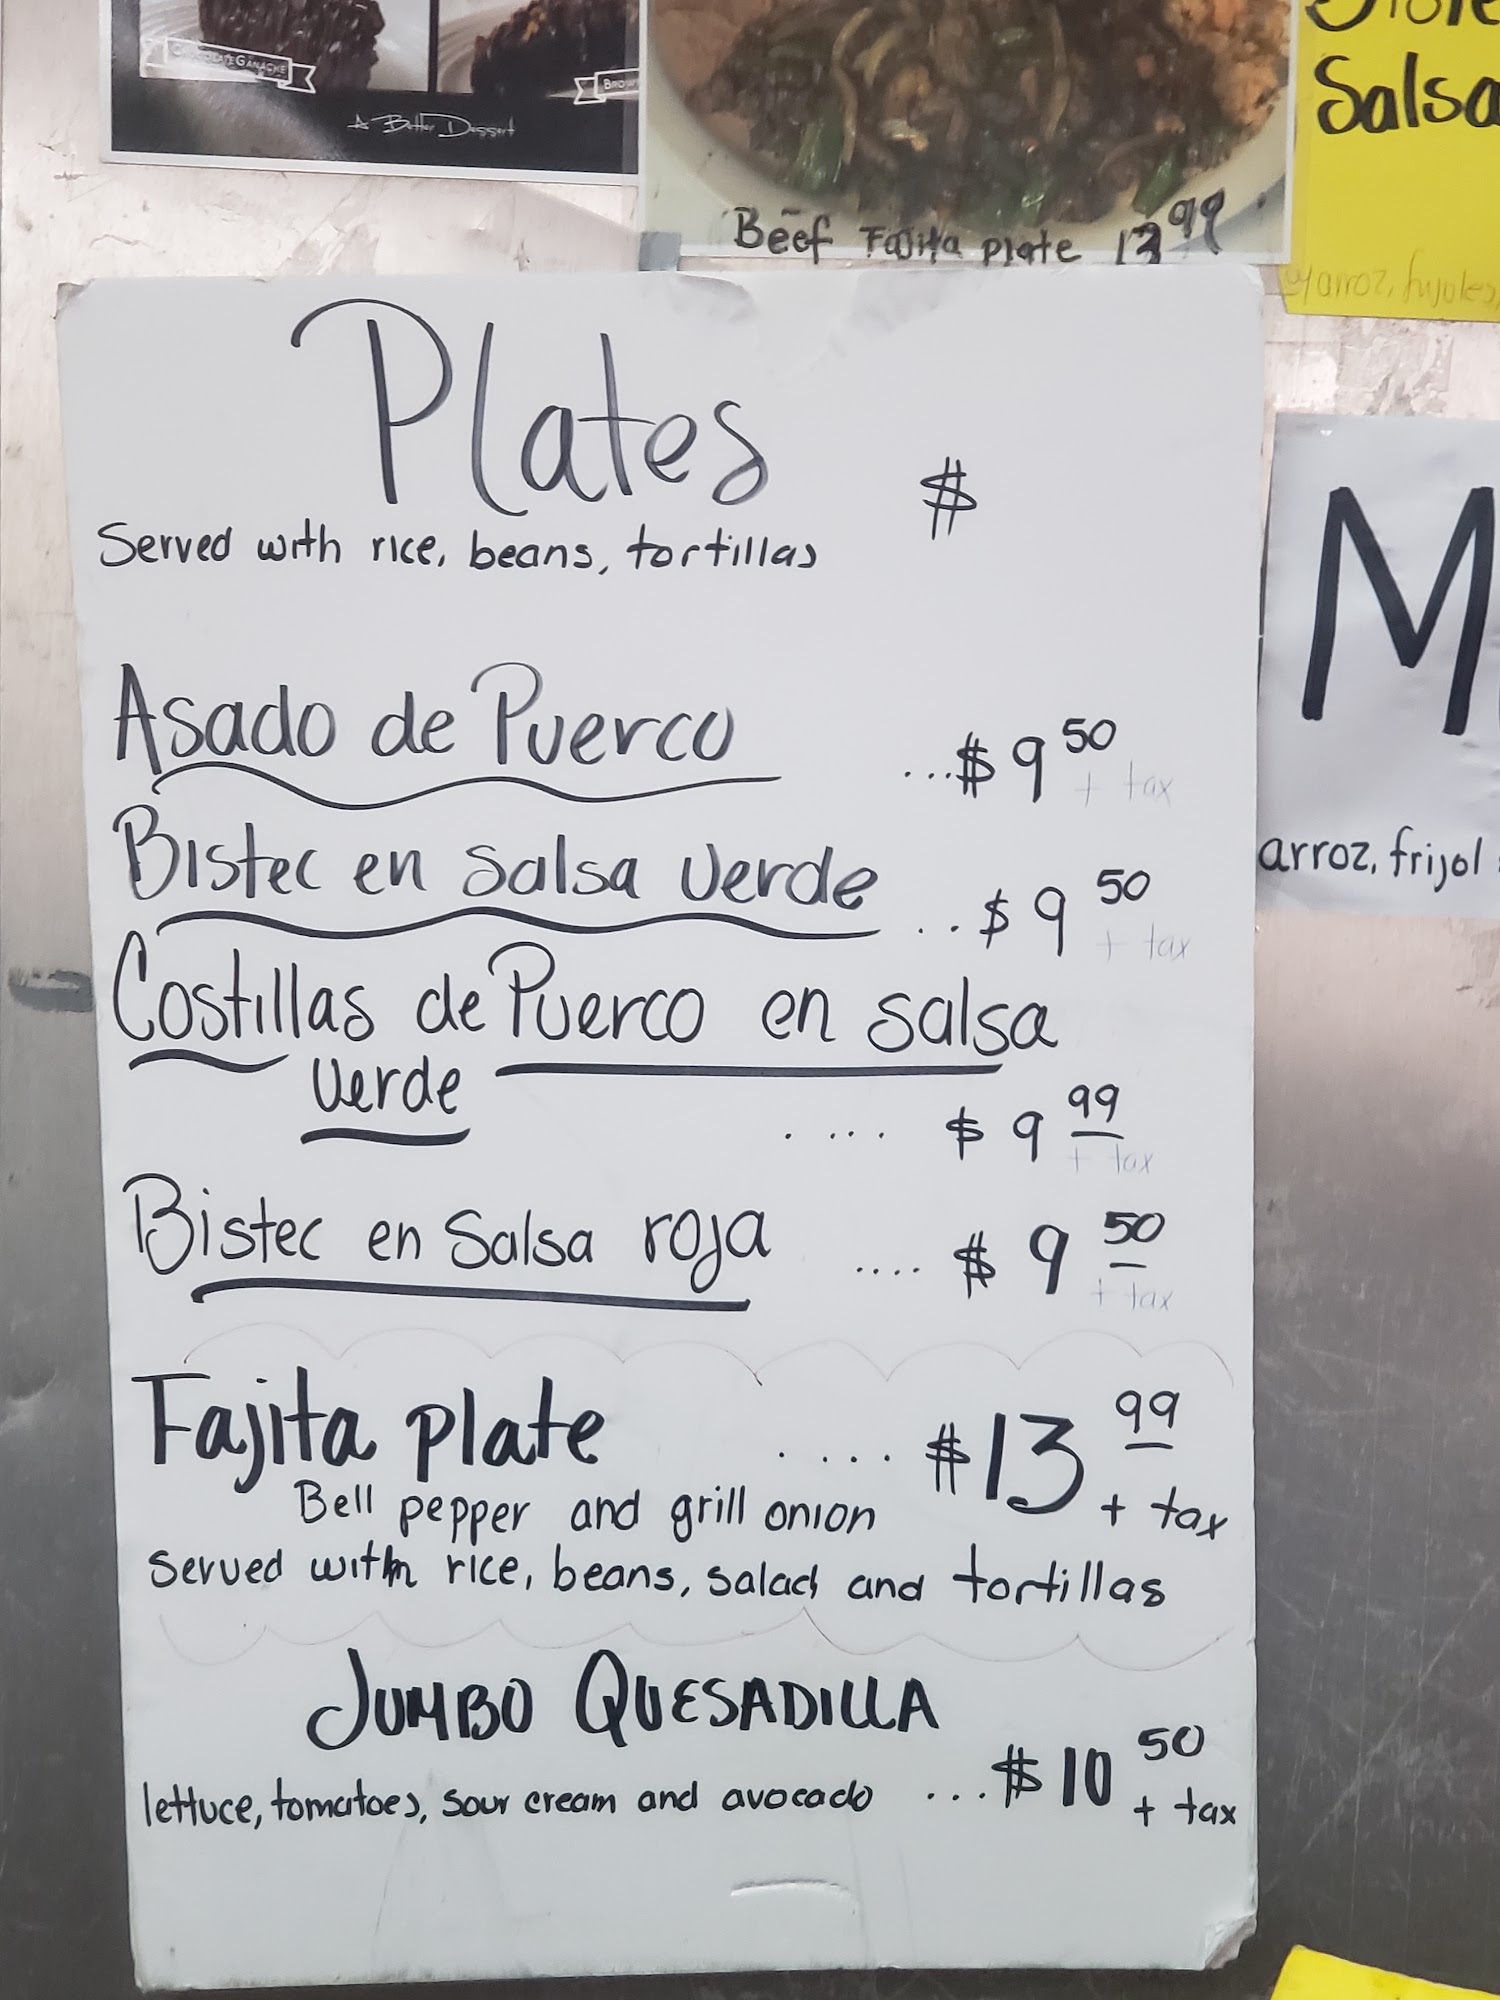 CHOCOLATE GANACHE
BROW
A Better Dessert
Beef Fajita plate 13 99
Salsa
y arroz, frijoles,
Plates $
Served with rice, beans, tortillas
Asado de Puerco ...$ 9 50 + tax
Bistec en salsa verde ..$ 9 50 + tax
Costillas de Puerco en salsa
verde .... $ 9 99 + tax
Bistec en Salsa roja .... $ 9 50 + tax
Fajita plate .... $13 99 + tax
Bell pepper and grill onion
served with rice, beans, salad and tortillas
JUMBO QUESADILLA
lettuce, tomatoes, sour cream and avocado ...$10 50 + tax
M
arroz, frijol